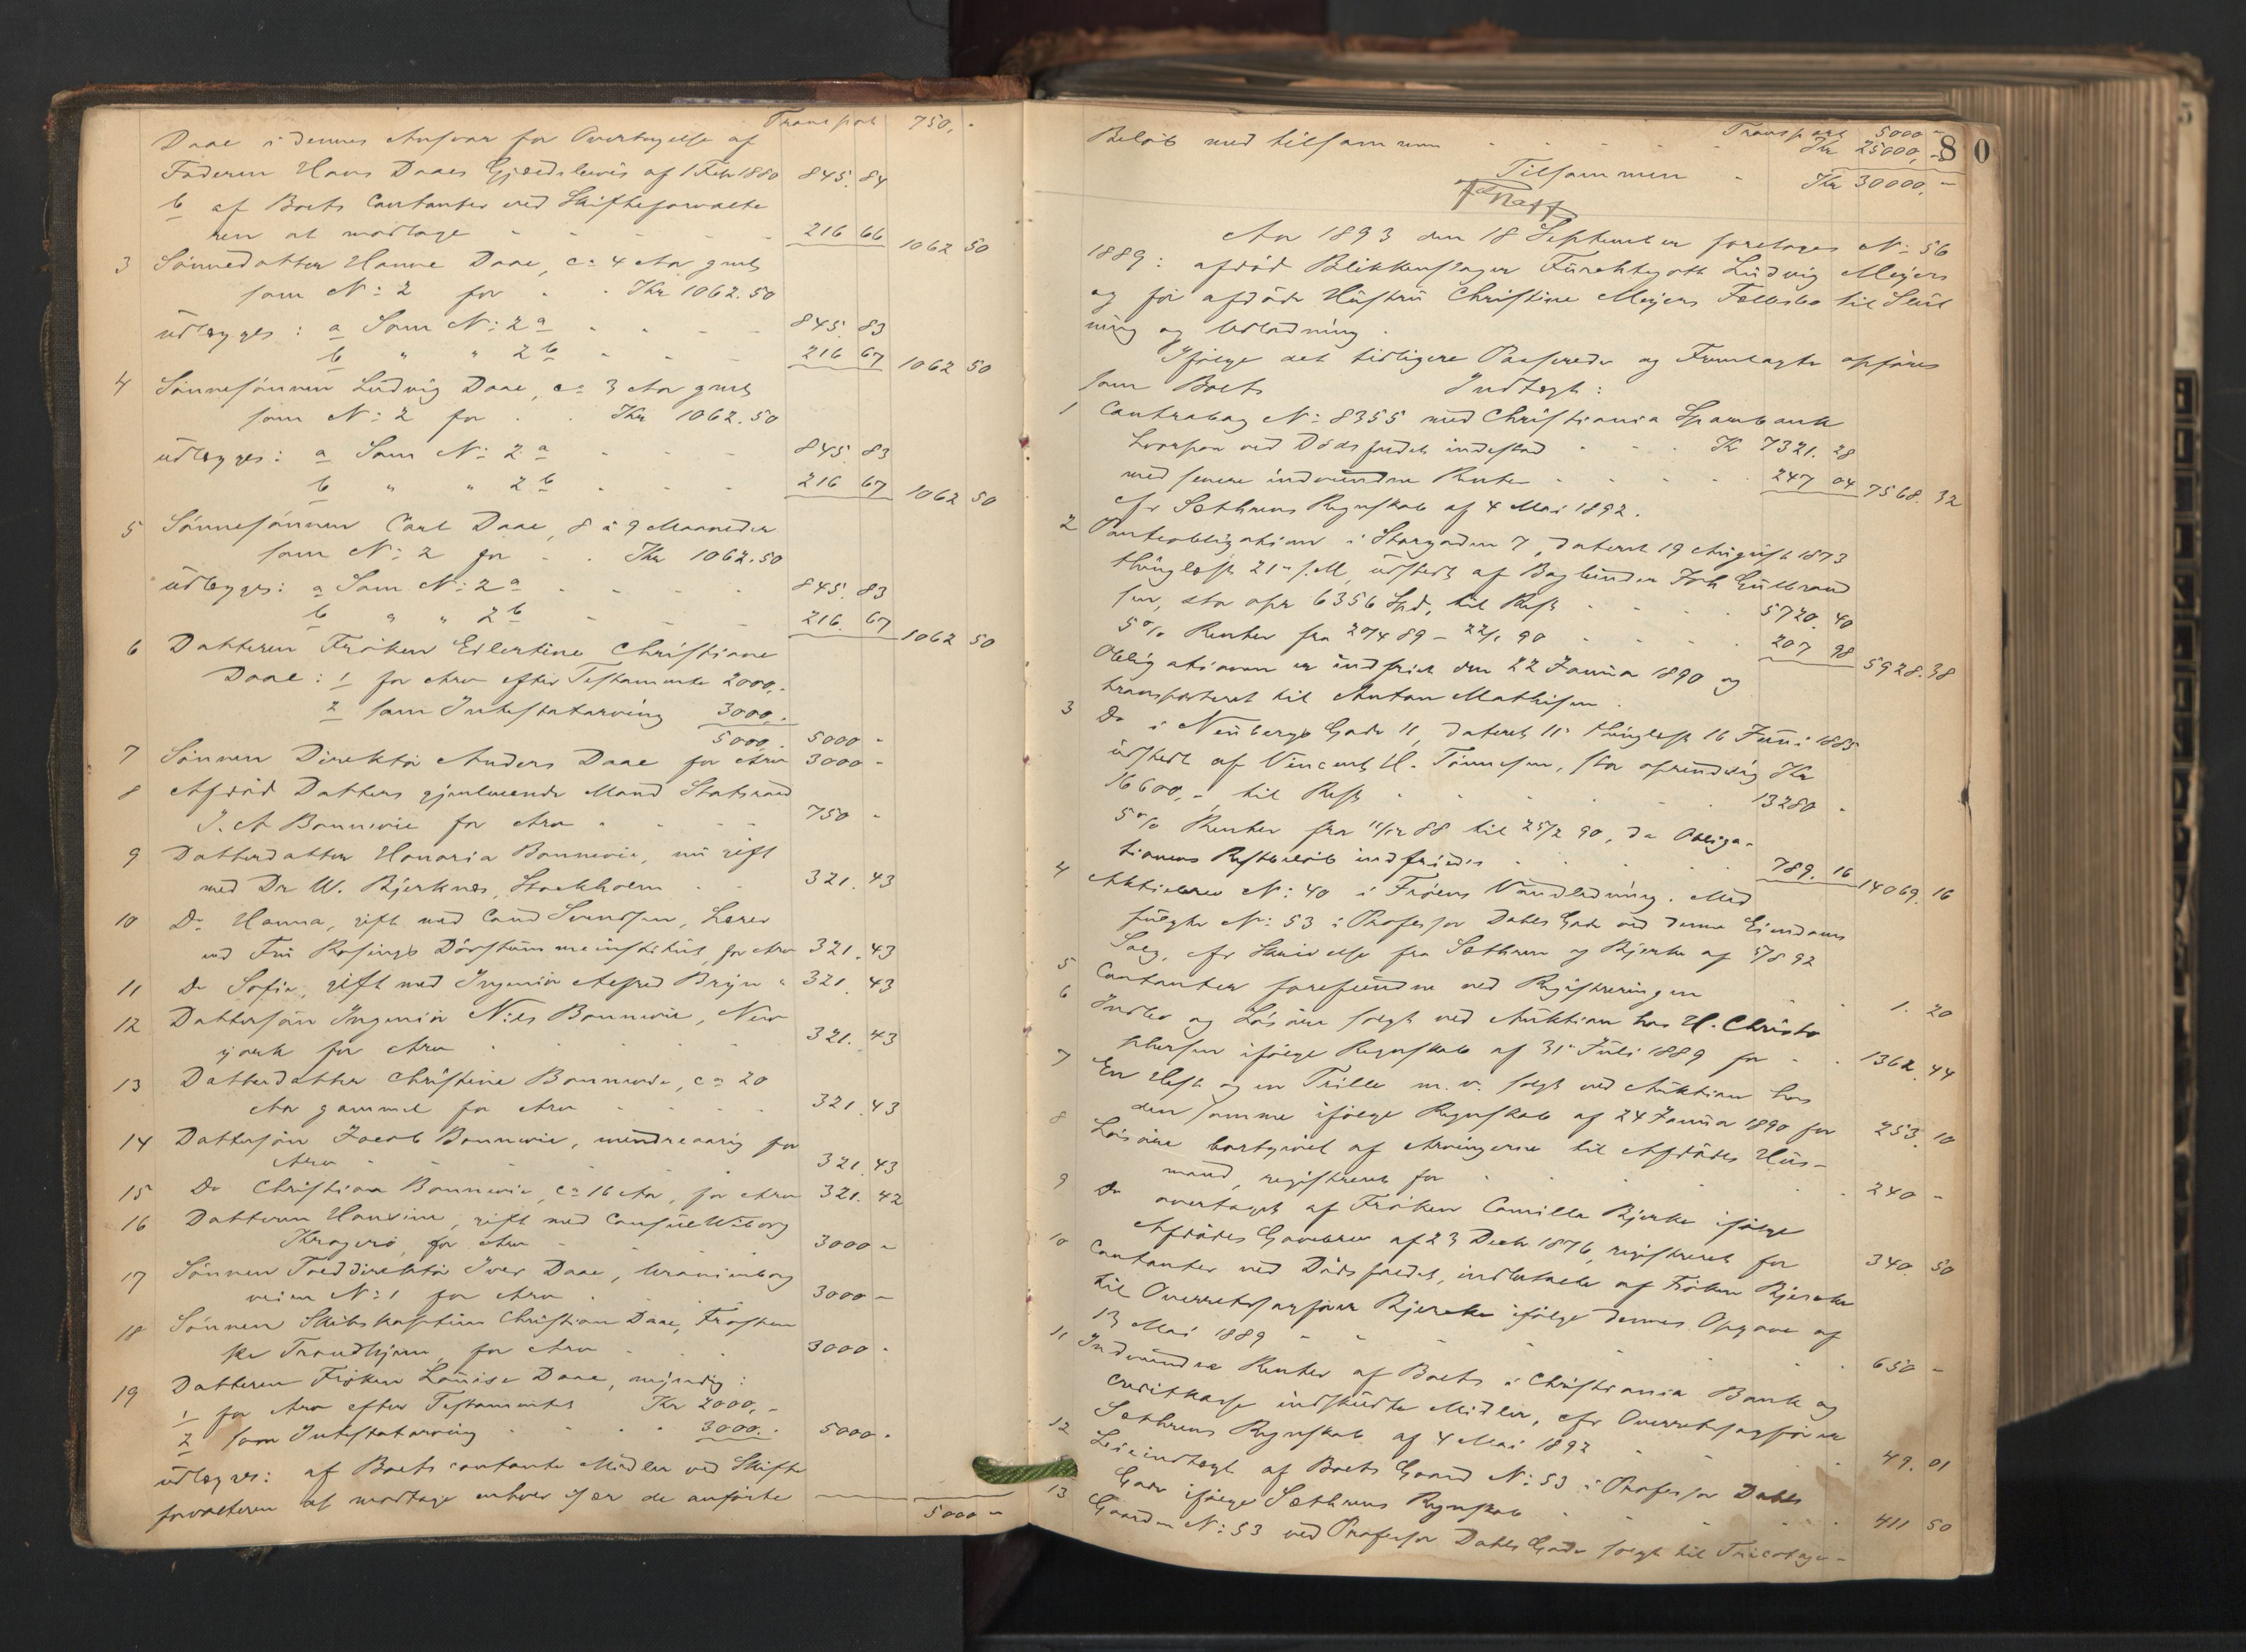 Transport 750. -
Daae i dennes Ansvar for Overtagelse af
Faderen Hans Daaes Gjældsbevis af 1 Febr 1880 845. 84
b af Boets Contanter ved Skifteforvalte
ren at modtage - - - 216 66 1062 50
3 Sønnedatter Hanna Daae, ca 4 Aar gml
som No: 2 for - - Kr 1062.50
udlægges: a Som No: 2 a - - - 845. 83
b " " 2 b - - - 216 67 1062 50
4 Sønnesønnen Ludvig Daae, ca 3 Aar gml
som No: 2 for . . Kr 1062.50
udlægges: a Som No: 2 a - - - 845. 83
b " " 2 b - - - 216 67 1062 50
5 Sønnesønnen Carl Daae, 8 à 9 Maaneder
som No: 2 for - . Kr 1062.50
udlægges: a Som No: 2 a - - - 845. 83
b " " 2 b - - - 216. 67 1062 50
6 Datteren Frøken Edlertine Christiane
Daae: 1 for Arv efter Testamente 2000.-
2 som Intestatarving 3000. -
5000. 5000 -
7 Sønnen Direktør Anders Daae for Arv 3000 -
8 Afdød Datters gjenlevende Mand Statsraad
J. A Bonnevie for Arv - - - 750 -
9 Datterdatter Honoria Bonnevie, nu gift
med Dr W. Bjerknes, Stockholm - - 321. 43
10 Do Hanna, gift med Cand Svendsen, Lærer
ved Fru Rosings Døvstummeinstitut, for Arv 321. 43
11 Do Sofie, gift med Ingeniør Alfred Bryn " 321. 43
12 Dattersøn Ingeniør Niels Bonnevie, New
york for Arv - - - 321. 43
13 Datterdatter Christine Bonnevie, ca 20
Aar gammel for Arv - - - 321. 43
14 Dattersøn Jacob Bonnevie, mindreaarig for
Arv - - - 321. 43
15 Do Christian Bonnevie, ca 16 Aar, for Arv 321. 42
16 Datteren Hansine, gift med Consul Wiborg
Kragerø, for Arv - - 3000 -
17 Sønnen Tolddirektør Iver Daae, Uranienborg
veien No: 1 for Arv - - 3000 -
18 Sønnen Skibskaptein Christian Daae,
Trondhjem, for Arv - - 3000 -
19 Datteren Frøken Louise Daae, myndig:
1 for Arv efter Testamentet Kr 2000.-
2 som Intestatarving - - - 3000. - 5000 -
udlægges: af Boets contante Midler ved Skifte
forvalteren at modtage enhver især de anførte
5000 -
80
Transport 5000 -
Beløb med tilsammen - - - Kr 25000. -
Tilsammen - Kr 30000. -
Aar 1893 den 18 September foretages No: 56
1889: afdød Blikkenslager Furchtegott Ludvig Meyers
og før afdøde Hustru Christine Meyers Fællesbo til Slut
ning og Udlodning.
Ifølge det tidligere Passerede og Fremlagte opføres
som Boets Indtægt:
1 Contrabog No: 8355 med Christiania Sparebank
hvorpaa ved Dødsfaldet indestod - - - Kr 7321. 28
med senere indvundne Renter - - - 247 04 7568. 32
cfr Sæthrens Regnskab af 4 Mai 1892.
2 Panteobligation i Storgaden 7, dateret 19 August 1873
thinglæst 21. s.M, udstedt af Bogbinder Joh Gulbrand
sen, stor opr 6356 Spd, til Rest - - - 5720. 40
5% Renter fra 20/4 89 - 22/1 90 - - - 207 98 5928.38
Obligationen er indfriet den 22 Januar 1890 og
transporteret til Anton Mathisen.
3 Do i Neubergs Gade 11, dateret 11. thinglæst 16 Juni 1885
udstedt af Vincent H. Tønnesen, stor oprindelig Kr
16600,- til Rest - - - 13280 -
5% Renter fra 11/12 88 til 25/2 90, da Obliga-
tionens Restbeløb indfriedes - - - 789. 16 14069. 16
4 Aktiebrev No: 40 i Frøens Vandledning. Med
fulgte No: 53 i Professor Dahls Gade ved denne Eiendoms
Salg, cfr Skrivelse fra Sæthren og Bjerke af 5/8 92
5 Contanter forefundne ved Registreringen - - 1. 20
6 Indbo og Løsøre solgt ved Auktion hos H. Christo
phersen ifølge Regnskab af 31. Juli 1889 for - - 1362. 44
7 En Hest og en Trille m. v. solgt ved Auktion hos
den samme ifølge Regnskab af 24 Januar 1890 for 253. 10
8 Løsøre bortgivet af Arvingerne til Afdødes Hus-
mand, registreret for - - - 240 -
9 Do overtaget af Frøken Camilla Bjerke ifølge
Afdødes Gavebrev af 23 Decbr 1876, registreret for 340. 50
10 Contanter ved Dødsfaldet, indbetalt af Frøken Bjercke
til Overretssagfører Bjercke ifølge dennes Opgave af
13 Mai 1889 - - - 650 -
11 Indvundne Renter af Boets i Christiania Bank og
Creditkasse indskudte Midler, cfr Overretssagfører
Sæthrens Regnskab af 4 Mai 1892 - - 49. 01
12 Leieindtægt af Boets Gaard No: 53 i Professor Dahls
Gade ifølge Sæthrens Regnskab - - 411 50
13 Gaarden No: 53 ved Professor Dahls Gade solgt til Tricotage-